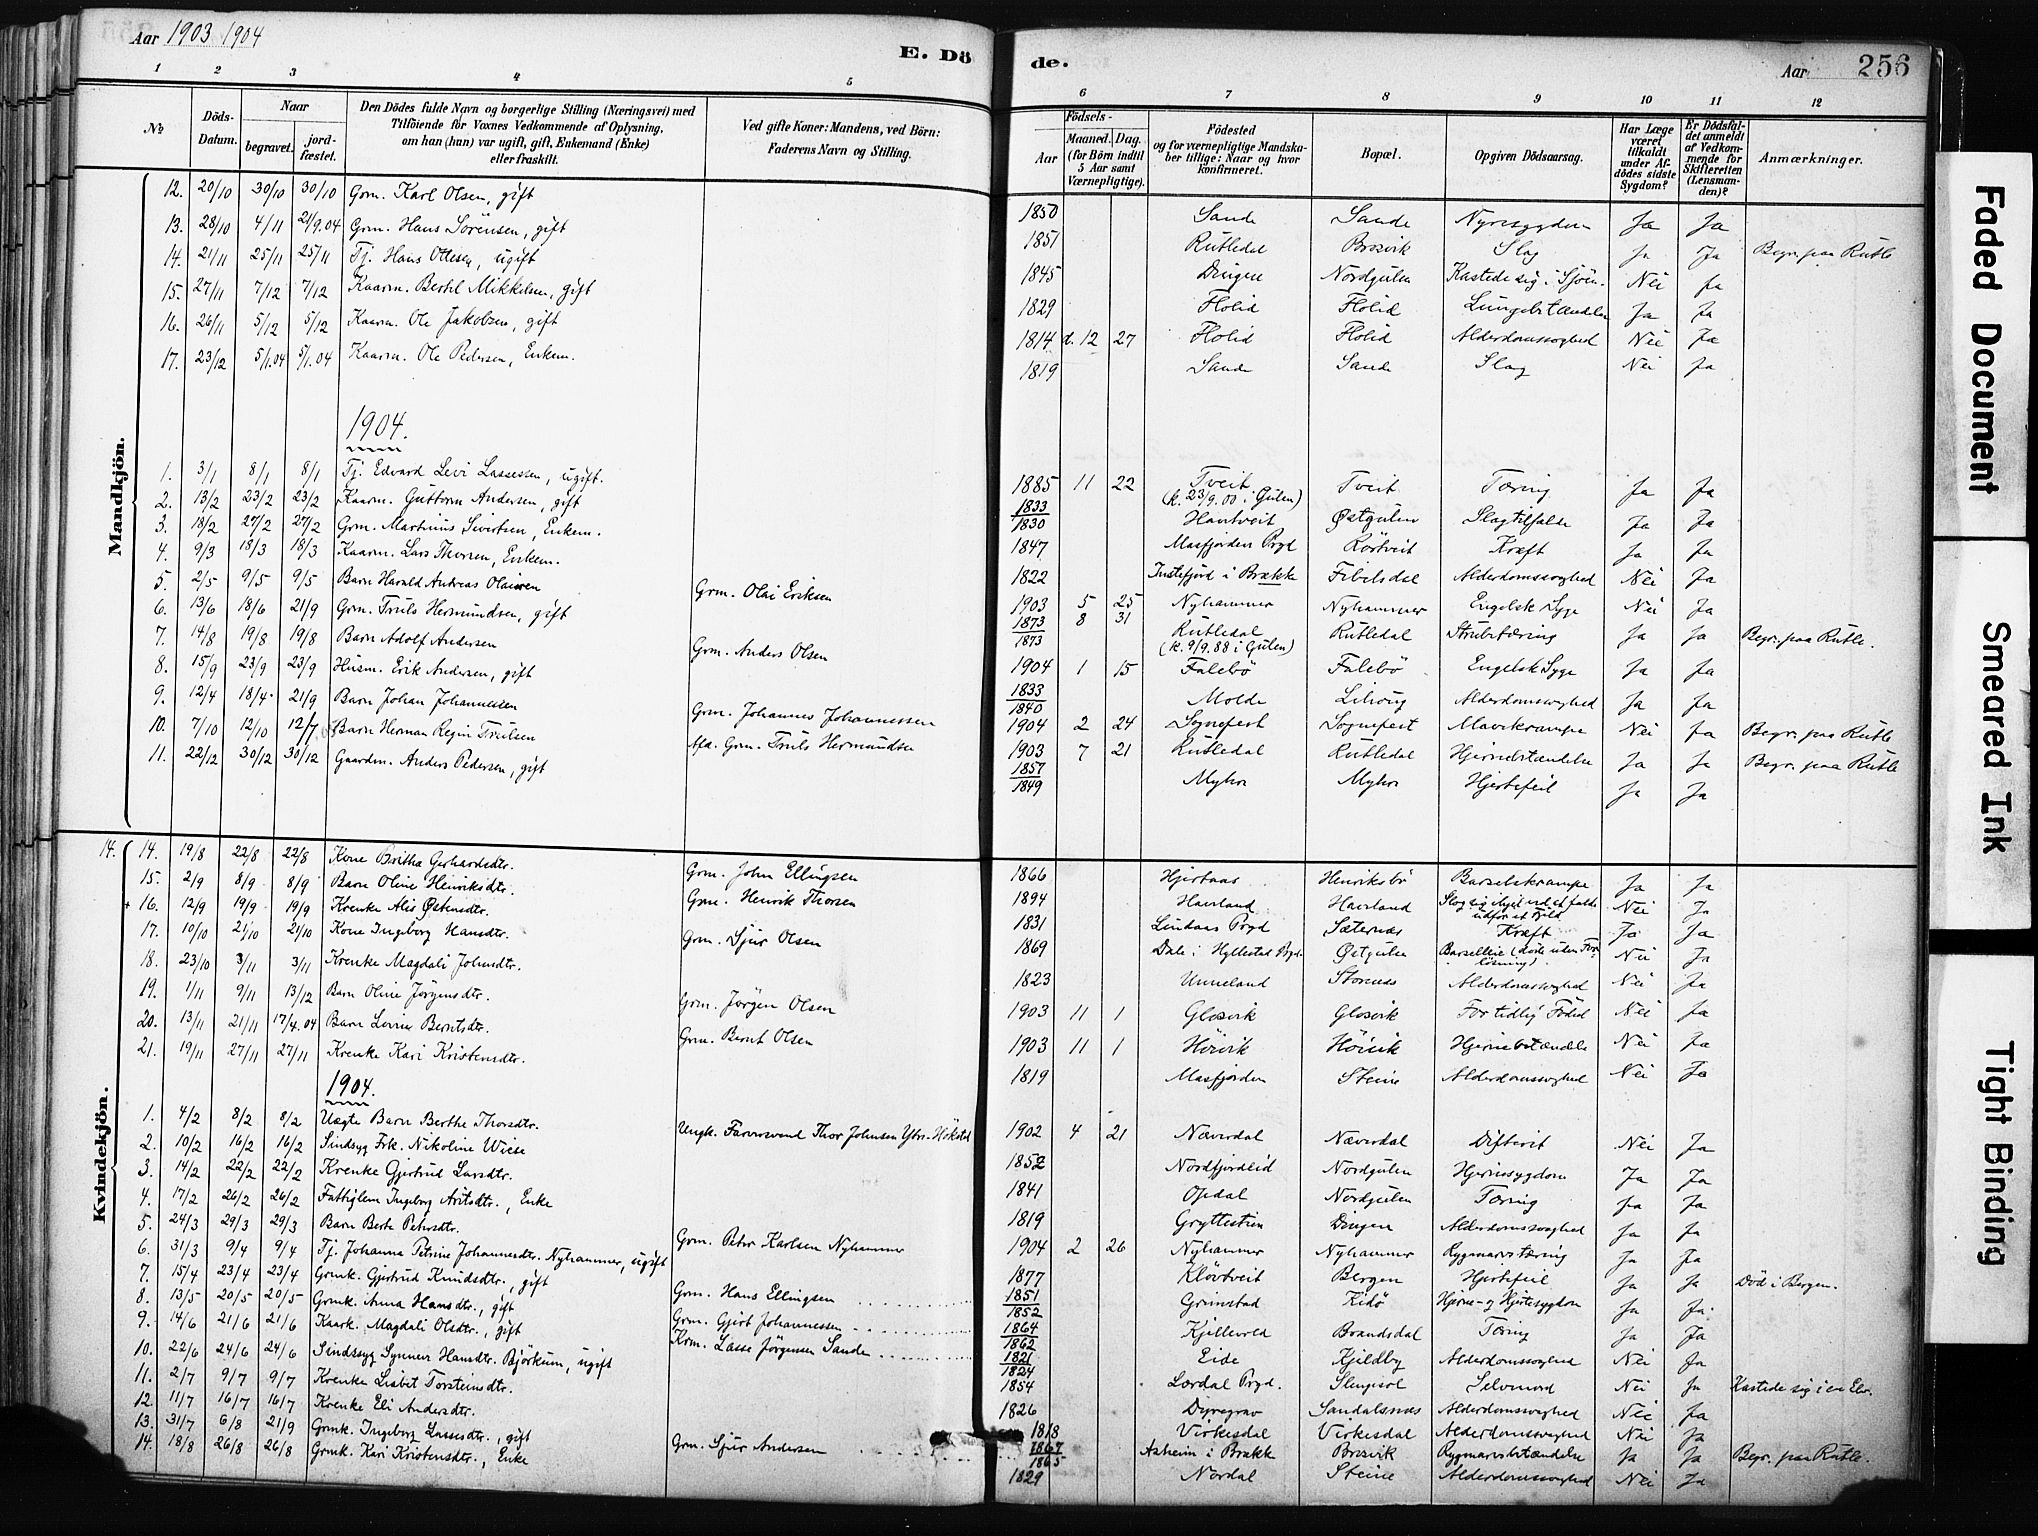 Aar 1903 1904
E. Dö
de.
Aar
256
1 2 3 4 5 6 7 8 9 10 11 12
№
Döds-
Datum.
Naar
begravet.
jord-
fæstet.
Den Dödes fulde Navn og borgerlige Stilling (Næringsvei) med
Tilföiende for Voxnes Vedkommende af Oplysning,
om han (hun) var ugift, gift, Enkemand (Enke)
eller fraskilt.
Ved gifte Koner: Mandens, ved Börn:
Faderens Navn og Stilling.
Födsels-
Aar
Maaned. Dag.
(for Börn indtil
5 Aar samt
Værnepligtige).
Födested
og for værnepligtige Mandska-
ber tillige: Naar og hvor
konfirmeret.
Bopæl.
Opgiven Dödsaarsag.
Har Læge
været
tilkaldt
under Af-
dödes sidste
Sygdom?
Er Dödsfal-
det anmeldt
af Vedkom-
mende for
Skifteretten
(Lensman-
den)?
Anmærkninger.
Mandkjön.
12. 20/10 30/10 30/10 Grm. Karl Olsen, gift 1850 Sande Sande Nyresygdom Ja Ja
13. 28/10 4/11 21/9.04 Grm. Hans Sörensen, gift 1851 Rutledal Brosvik Slag Ja Ja Begr. paa Rutle
14. 21/11 25/11 25/11 Tj. Hans Ottesen, ugift 1845 Dingen Nordgulen Kastede sig i Sjöen. Nei Ja
15. 27/11 7/12 7/12 Kaarm. Bertil Mikkelsen, gift 1829 Flolid Flolid Lungebetændelse Ja Ja
16. 26/11 5/12 5/12 Kaarm. Ole Jakobsen, gift 1814 d. 12 27 Flolid Flolid Alderdomssvaghed Nei Ja
17. 23/12 5/1.04 5/1.04 Kaarm. Ole Pedersen, Enkem. 1819 Sande Sande Slag Nei Ja
1904.
1. 3/1 8/1 8/1 Tj. Edvard Levi Lassessen, ugift. 1885 11 22 Tveit (k. 23/9.00 i Gulen) Tveit Tæring Ja Ja
2. 13/2 23/2 23/2 Kaarm. Guttorm Andersen, gift 1833 1830 Østgulen Slagtilfælde Ja Ja
3. 18/2 27/2 27/2 Grm. Martinus Sivertsen, Enkem. 1847 Masfjorden Prgd Rörtveit Kræft Ja Ja
4. 9/3 18/3 18/3 Kaarm. Lars Thorsen, Enkem. 1822 Instefjord i Brække Alderdomssvaghed Nei Ja
5. 2/5 9/5 9/5 Barn Harald Andreas Olaisen Grm. Olai Eriksen 1903 5 25 Nyhammer Nyhammer Engelsk Syge Nei Ja
6. 13/6 18/6 21/9 Grm. Truls Hermundsen, gift 1873 1873 8 31 Rutledal (k. 9/9.88 i Gulen) Rutledal Strubetæring Ja Ja Begr. paa Rutle.
7. 14/8 19/8 19/8 Barn Adolf Andersen Grm. Anders Olsen 1904 1 15 Falebö Falebö Engelsk Syge Ja Ja
8. 15/9 23/9 23/9 Husm. Erik Andersen, gift 1833 1840 Molde Alderdomssvaghed Ja Ja
9. 12/4 18/4 21/9 Barn Johan Johannessen Grm. Johannes Johannessen 1904 2 24 Sognefest Sognefest Mavekrampe Nei Ja Begr. paa Rutle
10. 7/10 12/10 12/7 Barn Herman Regin Trulsen Afd. Grm. Truls Hermundsen 1903 7 21 Rutledal Rutledal Hjernebetændelse Ja Ja Begr. paa Rutle
11. 22/12 30/12 30/12 Gaardm. Anders Pedersen, gift 1857 1849 Myhre Myhre Hjertefeil Ja Ja
Kvindekjön.
14. 14. 19/8 22/8 22/8 Kone Britha Gerhardsdtr. Grm. John Ellingsen 1866 Hjertaas Henriksbö Barselskrampe Ja Ja
15. 2/9 8/9 8/9 Barn Oline Henriksdtr. Grm. Henrik Thorsen 1894 Haveland Haveland Slog sig ihjel ved et fald udfor et Fjeld Nei Ja
+ 16. 12/9 19/9 19/9 Krenke Alis Østensdtr. 1831 Lindaas Prgd Sæternæs Kræft Ja Ja
17. 10/10 21/10 21/10 Kone Ingeborg Hansdtr. Grm. Sjur Olsen 1869 Dale i Hyllestad Prgd. Østgulen Barselleie (döde uden For- lösning) Nei Ja
18. 23/10 3/11 3/11 Krenke Magdali Johnsdtr. 1823 Unneland Storenes Alderdomssvaghed Nei Ja
19. 1/11 9/11 13/12 Barn Oline Jörgensdtr. Grm. Jörgen Olsen 1903 11 1 Glosvik Glosvik For tidlig Födsel Nei Ja
20. 13/11 21/11 17/4.04 Barn Lovise Berntsdtr. Grm. Bernt Olsen 1903 11 1 Höivik Höivik Hjernebetændelse Nei Ja
21. 19/11 27/11 27/11 Krenke Kari Kristensdtr. 1819 Masfjorden Steine Alderdomssvaghed Nei Ja
1904.
1. 4/2 8/2 8/2 Uægte Barn Berthe Thorsdtr. Ungk. Farversvend Thor Johnsen Ytre-Hökstel 1902 4 21 Næverdal Næverdal Difterit Nei Ja
2. 10/2 16/2 16/2 Sindsyg Frk. Nikoline Wiese 1852 Nordfjordeid Nordgulen Hjernesygdom Ja Ja
3. 14/2 22/2 22/2 Krenke Gjertrud Larsdtr. 1841 Opdal Nordgulen Tæring Ja Ja
4. 17/2 26/2 26/2 Fattiglem Ingeborg Arnsdtr., Enke 1819 Gryttestien Dingen Alderdomssvaghed Ja Ja
5. 24/3 29/3 29/3 Barn Berte Petersdtr. Grm. Peter Karlsen Nyhammer 1904 2 26 Nyhammer Nyhammer Rygmarvstæring Ja Ja
6. 31/3 9/4 9/4 Tj. Johanna Petrine Johannesdtr. Nyhammer, ugift 1877 Klövtveit Bergen Hjertefeil Ja Ja Död i Bergen.
7. 15/4 23/4 23/4 Grmk. Gjertrud Knudsdtr., gift Grm. Hans Ellingsen 1851 1852 Grimstad Eidö Hjerne- og Hjertesygdom Ja Ja
8. 13/5 20/5 20/5 Grmk. Anna Hansdtr., gift Grm. Gjert Johannessen 1864 1862 Kjellevold Brandsdal Tæring Ja Ja
9. 14/6 21/6 21/6 Kaark. Magdali Olsdtr., gift Krm. Lasse Jörgensen Sande 1821 1824 Eide Kjeldby Alderdomssvaghed Nei Ja
10. 22/6 24/6 24/6 Sindssyg Synneve Hansdtr. Björkum, ugift 1854 Lærdal Prgd. Selvmord Nei Ja Kastede sig i en Elv.
11. 2/7 9/7 9/7 Krenke Lisbet Torsteinsdtr. 1826 Dyregrov Sandalsnæs Alderdomssvaghed Nei Ja
12. 11/7 16/7 16/7 Krenke Eli Andersdtr. 1818 Virkesdal Virkesdal Alderdomssvaghed Nei Ja
13. 31/7 6/8 21/9 Grmk. Ingeborg Lassesdtr., gift Grm. Sjur Andersen 1867 1865 Asheim i Brækk Brosvik Rygmarvsbetændelse Ja Ja Begr. paa Rutle.
14. 18/8 26/8 26/8 Grmk. Kari Kristensdtr., Enke 1829 Nordal Steine Alderdomssvaghed Nei Ja
Faded Document
Smeared Ink
Tight Binding